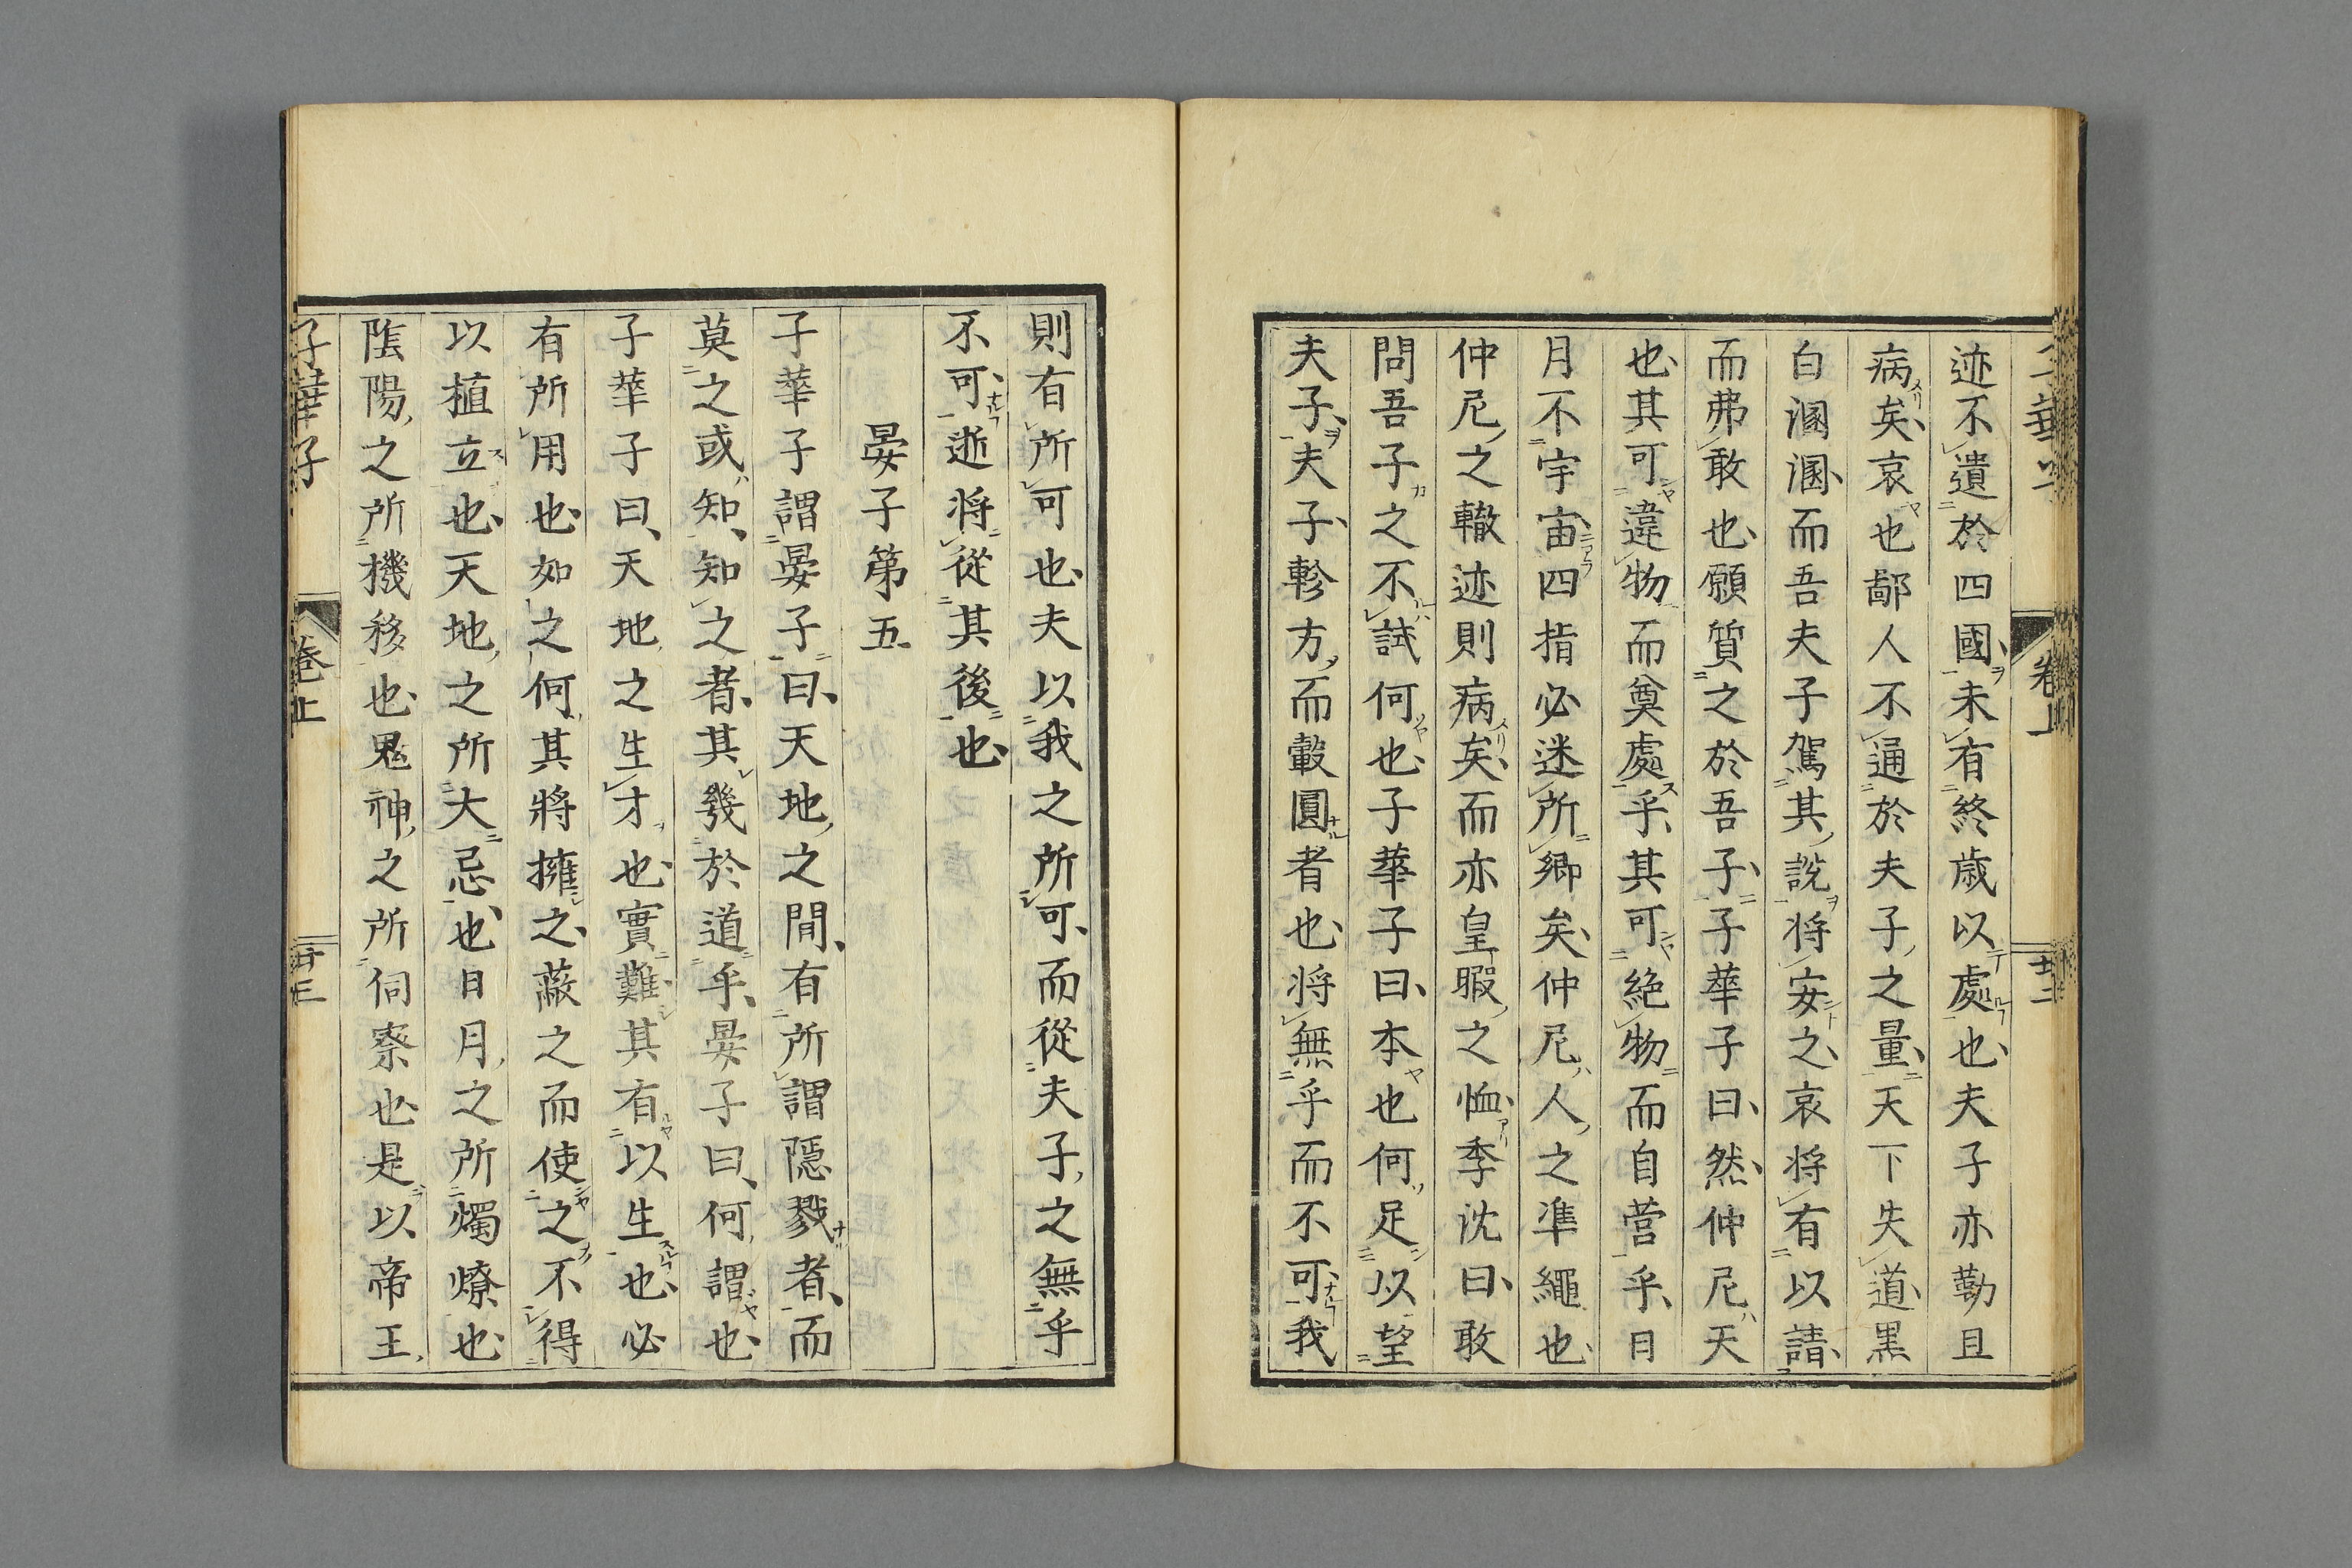 迹不遺於四國未有終歲以處也夫子亦勤且
病矣哀也鄙人不通於夫子之量天下失道黑
白溷溷而吾夫子駕其說将安之哀将有以請
而弗敢也願質之於吾子子華子曰然仲尼天
也其可違物而奠處乎其可絶物而自营乎日
月不宇宙四指必迷所鄉矣仲尼人之準繩也
仲尼之轍迹則病矣而亦皇暇之恤季沈曰敢
問吾子之不試何也子華子曰本也何足以望
夫子夫子軫方而轂圓者也将無乎而不可我
則有所可也夫以我之所可而從夫子之無乎
不可逝将從其後也
晏子第五
子華子謂晏子曰天地之間有所謂隱戮者而
莫之或知知之者其幾於道乎晏子曰何謂也
子華子曰天地之生才也實難其有以生也必
有所用也如之何其將擁之蔽之而使之不得
以植立也天地之所大忌也日月之所燭燎也
陰陽之所機移也鬼神之所伺察也是以帝王
子華子
卷上
十三